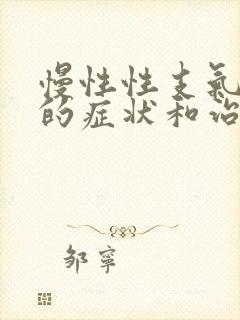 慢性性支氣
的症状和治
邹寧